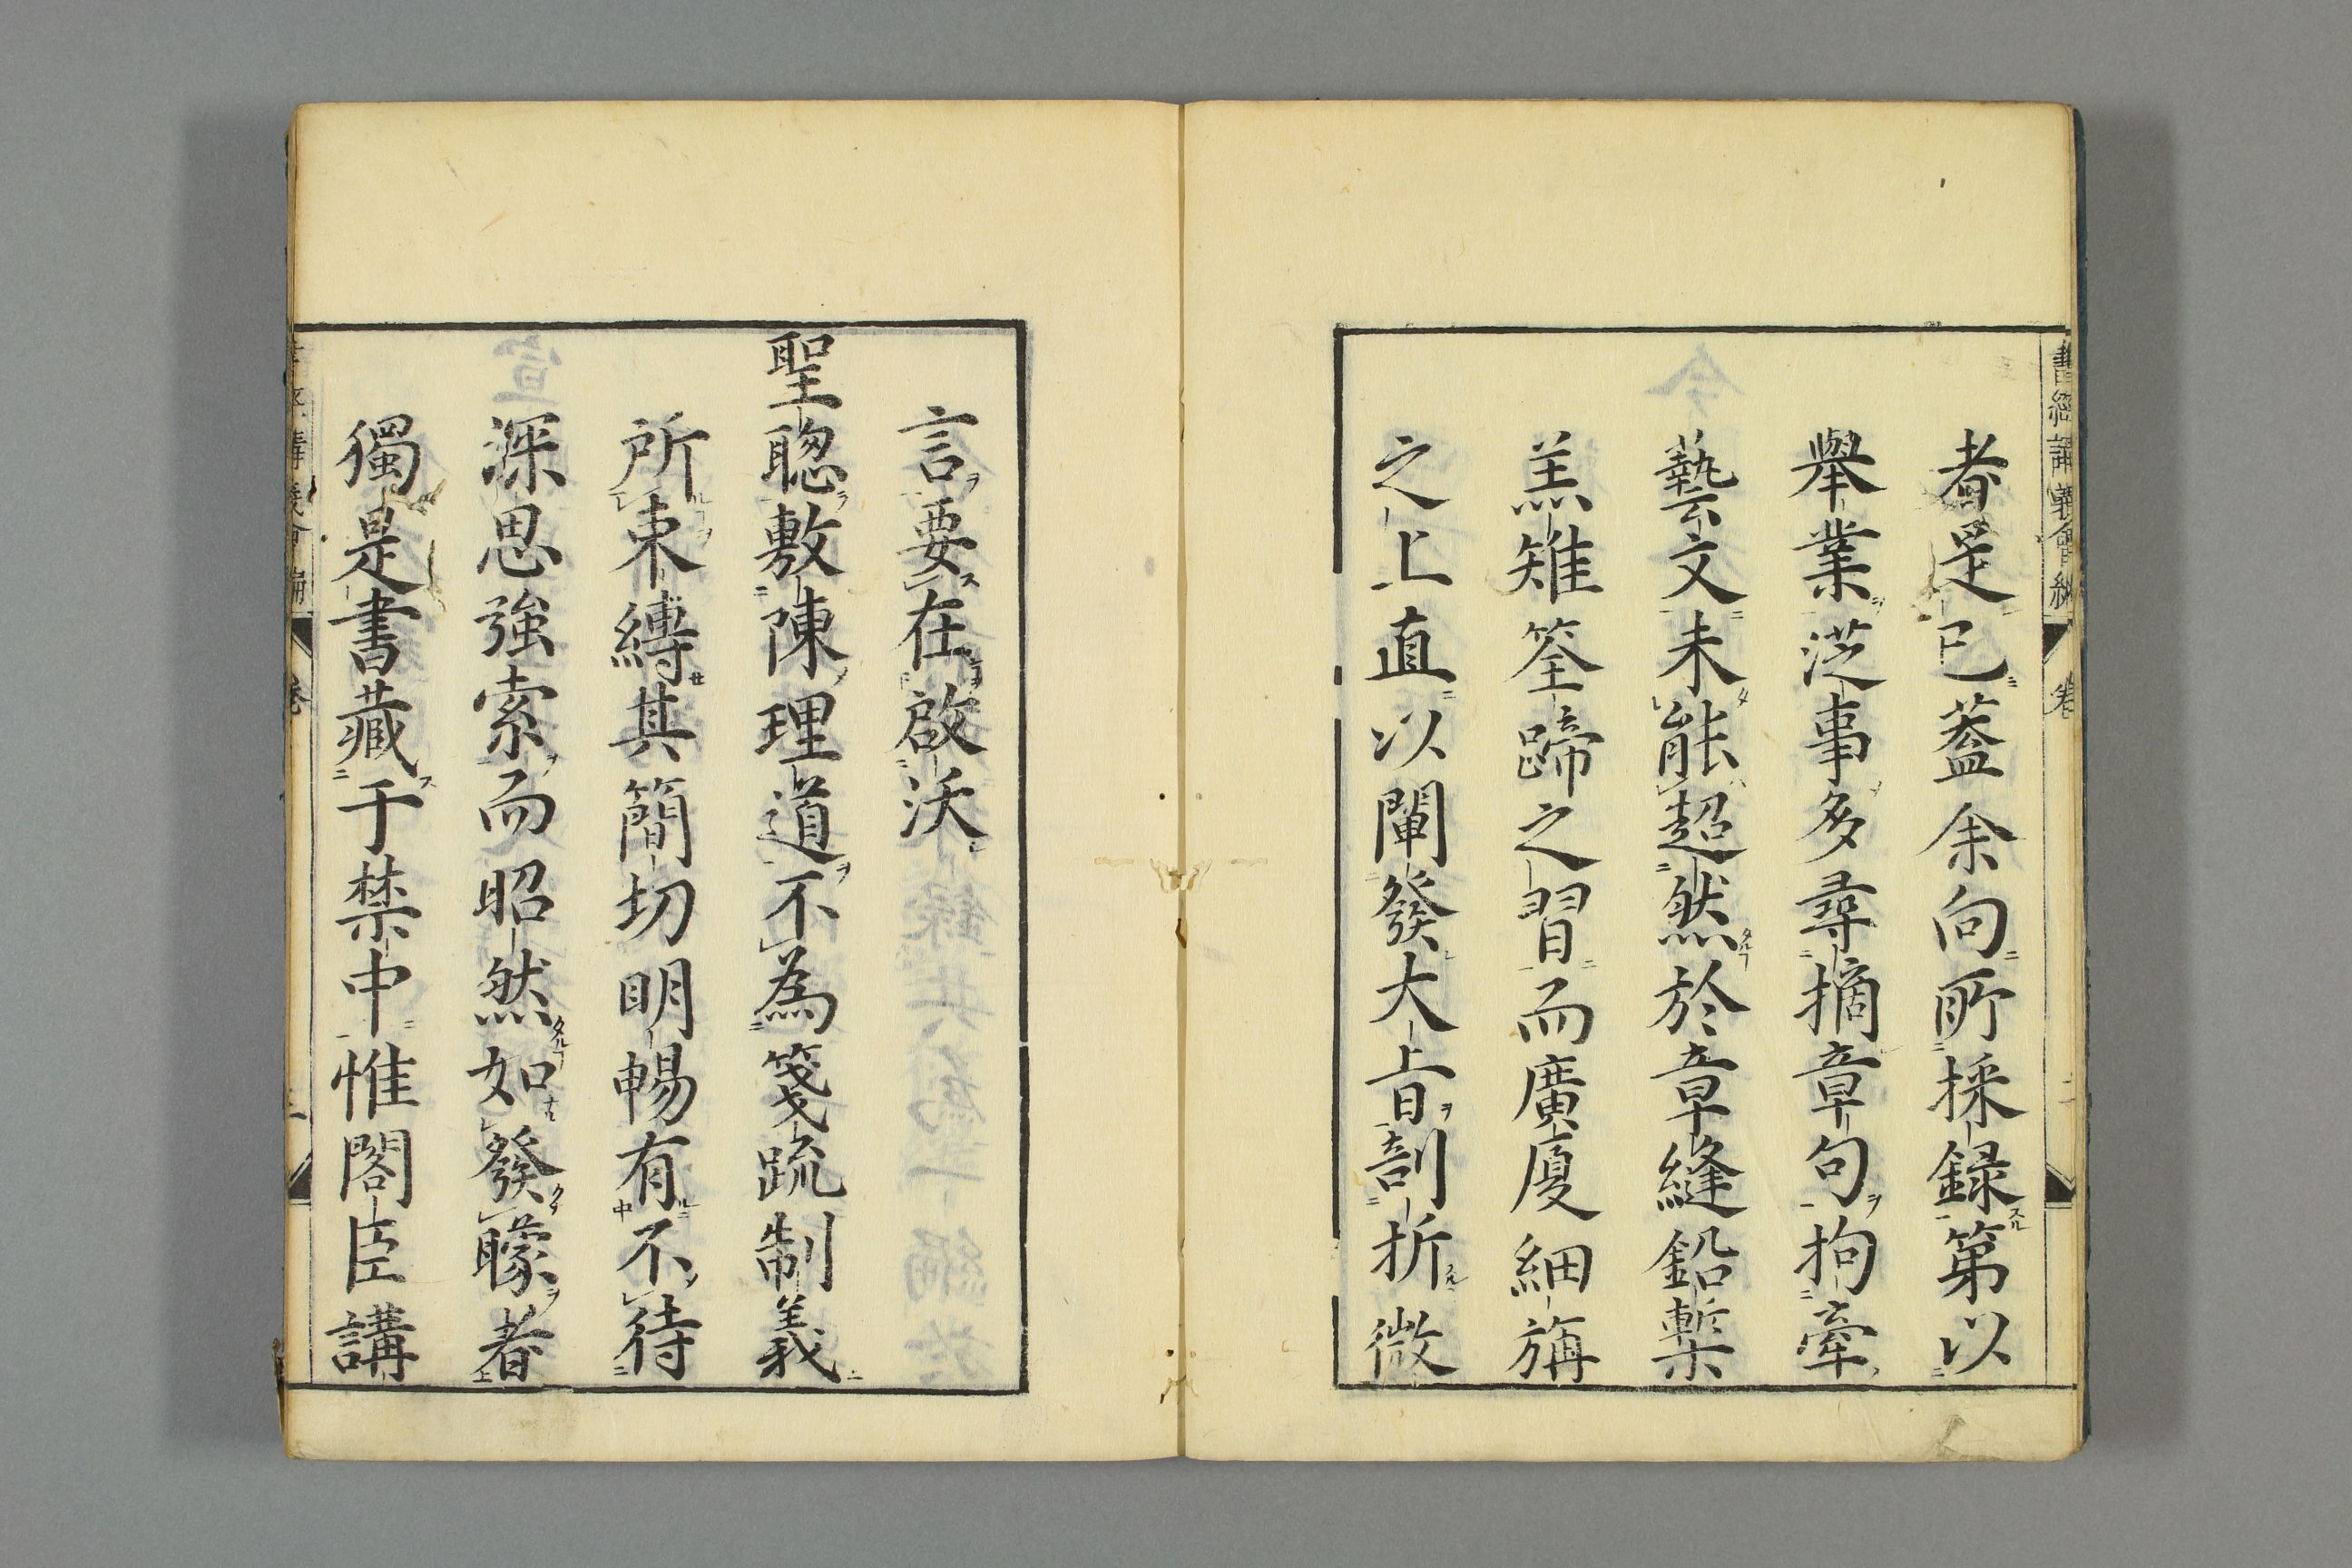 書經講義會編 卷
者是已蓋余向所採録第以
舉業涖事多尋摘章句拘牽
藝文未能超然於章縫鉛槧
羔雉筌蹄之習而廣廈細旃
之上直以闡發大旨剖折微
言要在啟沃
聖聰敷陳理道不為箋疏制義
所束縛其簡切明暢有不待
深思強索而昭然如發矇者
獨是書藏于禁中惟閣臣講